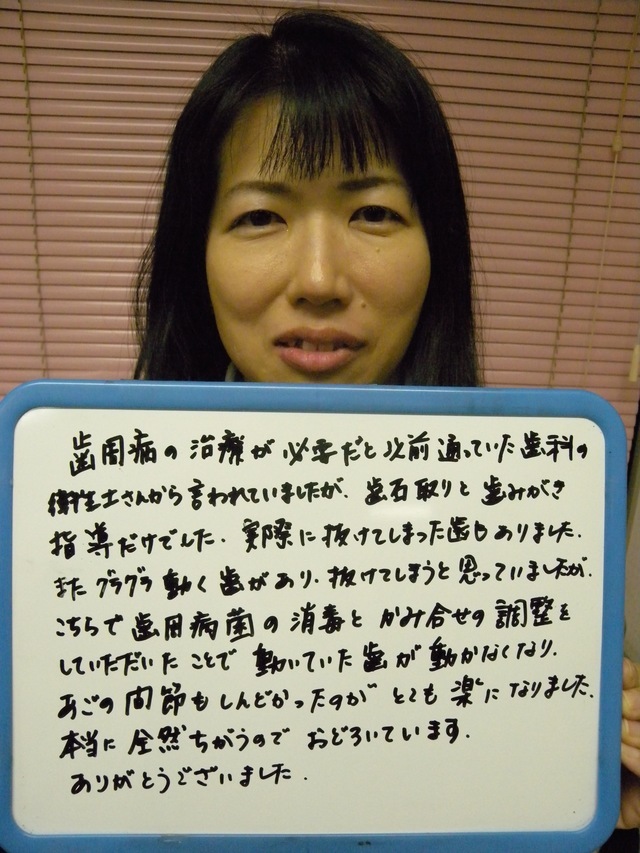 歯周病の治療が必要だと以前通っていた歯科の
衛生士さんから言われていましたが、歯石取りと歯みがき
指導だけでした。実際に抜けてしまった歯もありました。
またグラグラ動く歯があり、抜けてしまうと思っていましたが、
こちらで歯周病菌の消毒とかみ合せの調整を
していただいたことで動いていた歯が動かなくなり、
あごの関節もしんどかったのがとても楽になりました。
本当に全然ちがうのでおどろいています。
ありがとうございました。